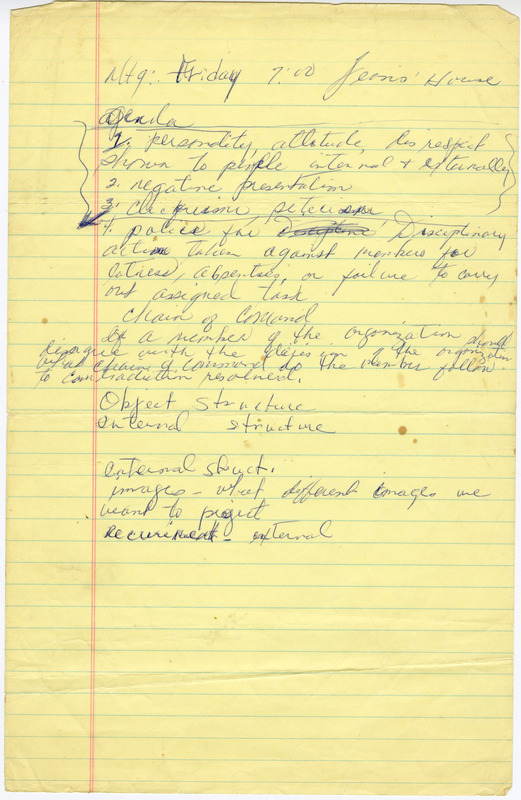 Mtg: Friday 7:00 Jeans' House
Agenda
1. personality, attitude, disrespect
shown to people internal + externally
2. negative presentation
3.
4. police for Disciplinary
action taken against members for
latness, absentees, or failure to carry
out assigned task
Chain of Command
If a member of the organization should
disagree with the of the organization
what chain of command do the member follow
to contradiction resolment.
Object Structure
internal structure
external struct.
images - what different images we
want to project
recuriment - external